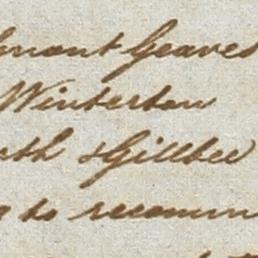 Geaves
Winterton
& Gillbee
to recomm